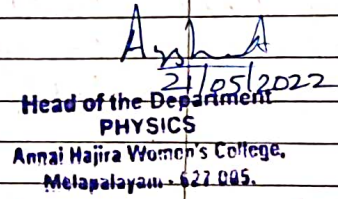 21/05/2022
Head of the Department
PHYSICS
Annai Hajira Women's College,
Melapalayam - 627 005.